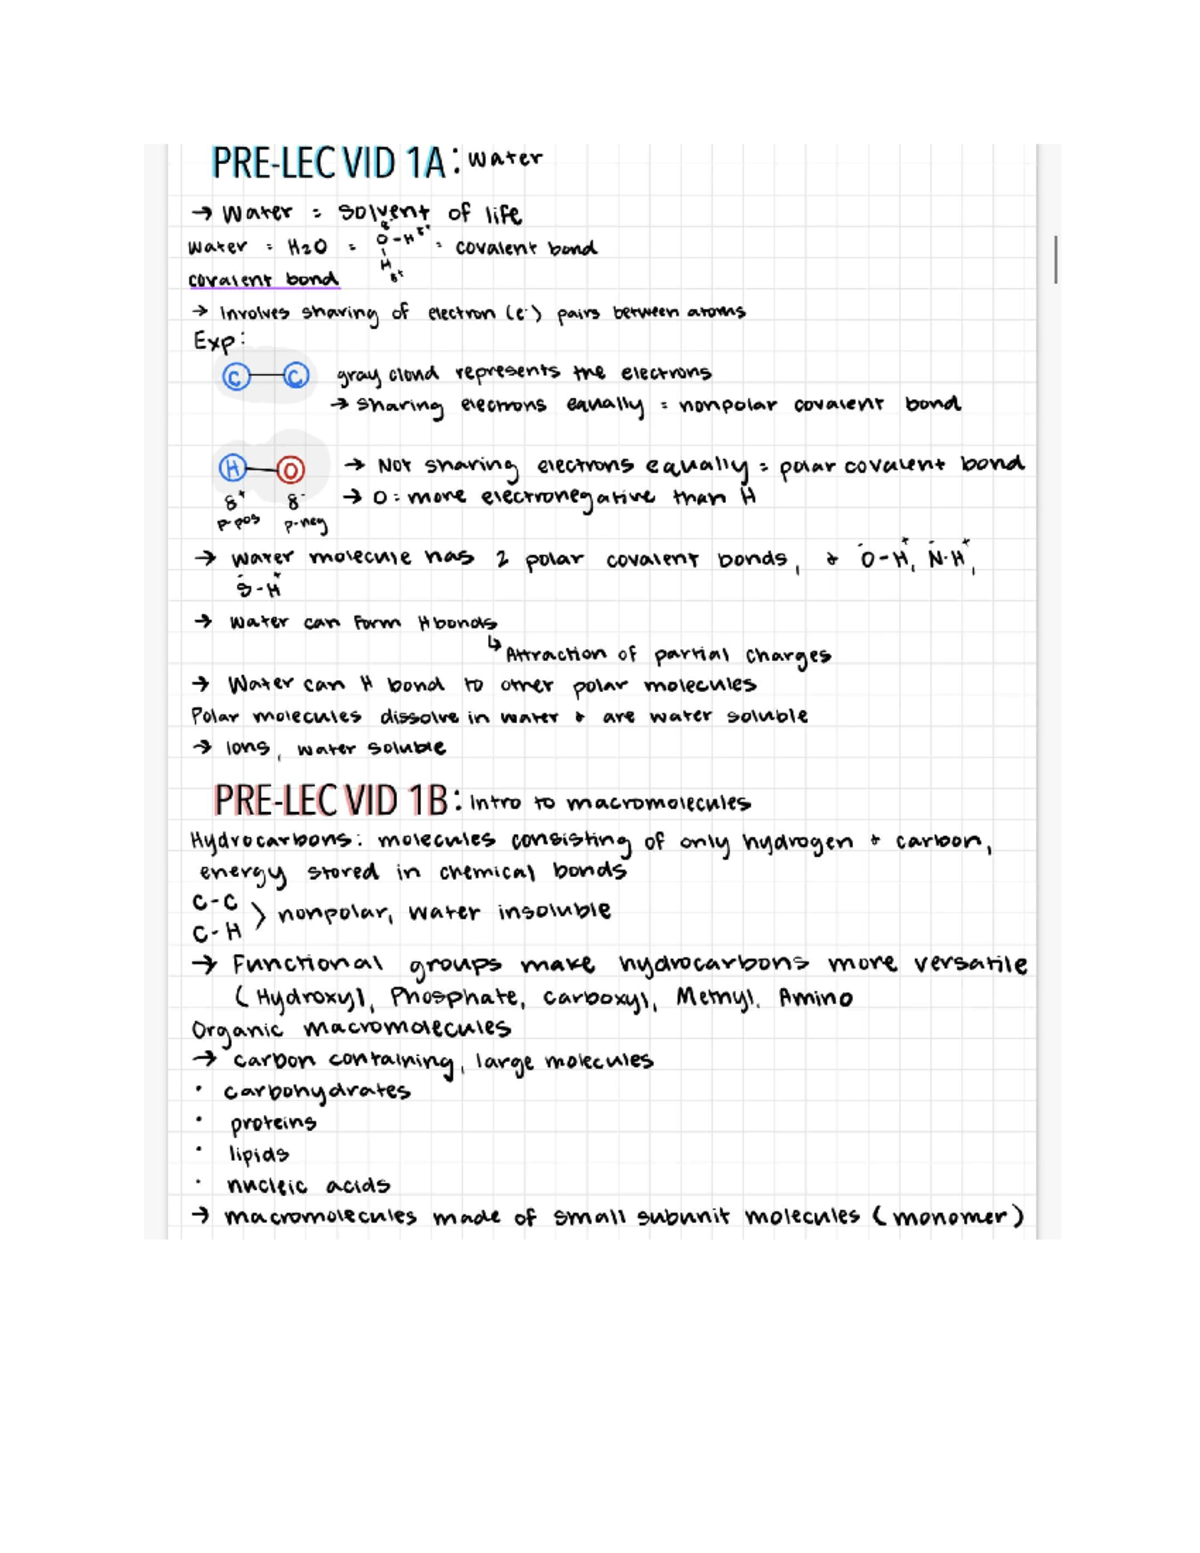 PRE-LEC VID 1A: Water
→ Water = solvent of life
Water = H2O = = covalent bond
δ-
O-H δ+
H
δ+
covalent bond
→ Involves sharing of electron (e-) pairs between atoms
Exp:
C—C gray cloud represents the electrons
→ sharing electrons equally = nonpolar covalent bond
H—O → Not sharing electrons equally = polar covalent bond
δ+ δ- → O = more electronegative than H
p-pos p-neg
→ water molecule has 2 polar covalent bonds, & O⁻-H⁺, N⁻-H⁺,
S⁻-H⁺
→ water can form H bonds
↳ Attraction of partial charges
→ Water can H bond to other polar molecules
Polar molecules dissolve in water & are water soluble
→ Ions, water soluble
PRE-LEC VID 1B: Intro to macromolecules
Hydrocarbons: molecules consisting of only hydrogen & carbon,
energy stored in chemical bonds
C-C
C-H > nonpolar, water insoluble
→ Functional groups make hydrocarbons more versatile
(Hydroxyl, Phosphate, carboxyl, Methyl, Amino
Organic macromolecules
→ carbon containing, large molecules
• carbohydrates
• proteins
• lipids
• nucleic acids
→ macromolecules made of small subunit molecules (monomer)